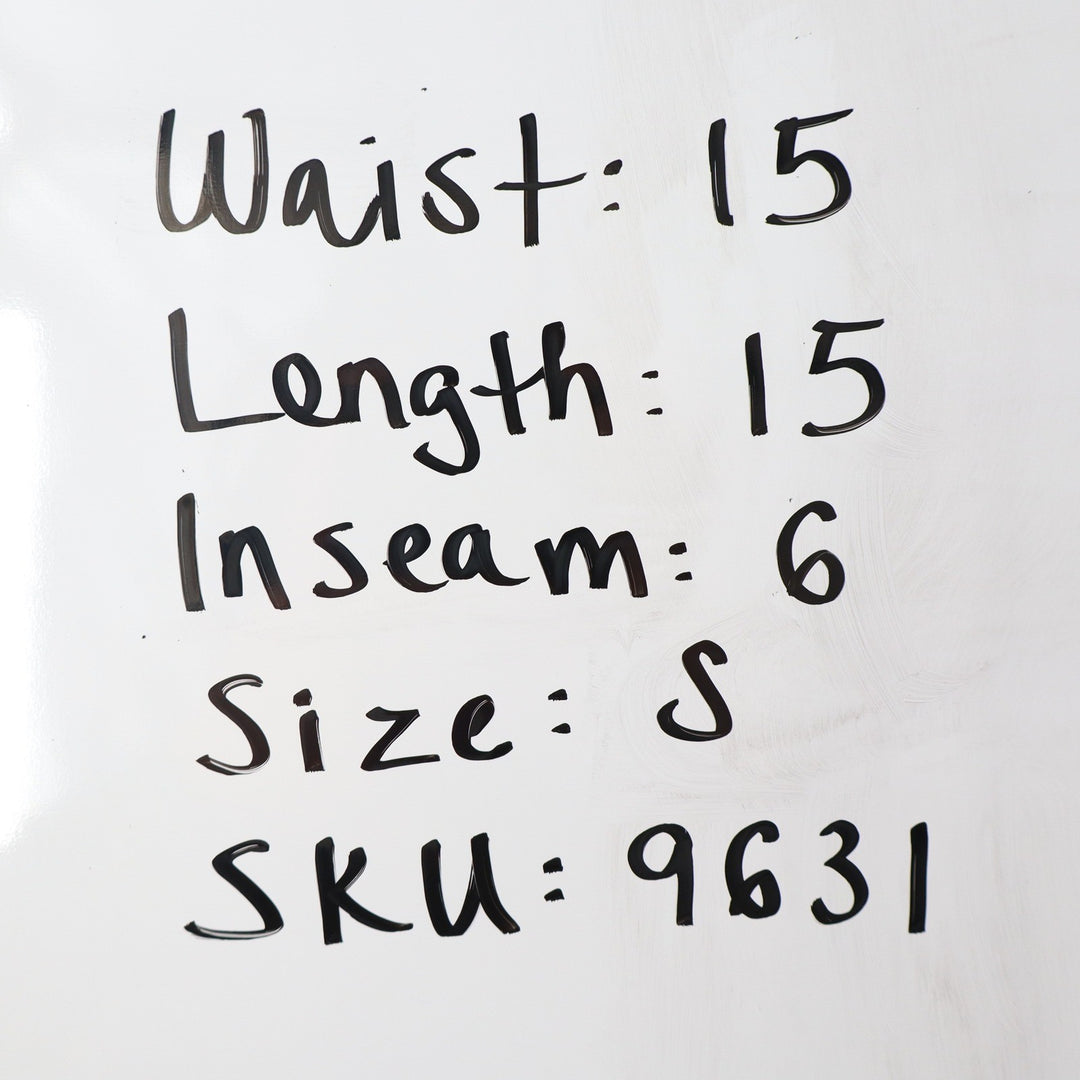 Waist: 15
Length: 15
Inseam: 6
Size: S
SKU: 9631